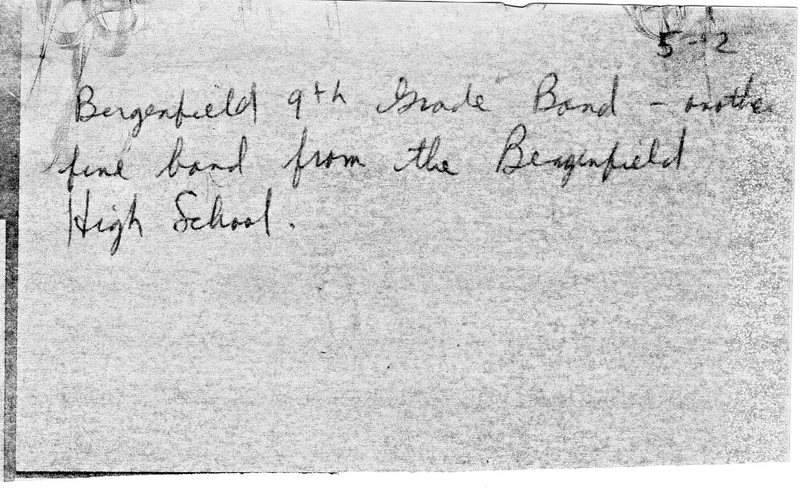 5-12
Bergenfield 9th Grade Band - another
fine band from the Bergenfield
High School.